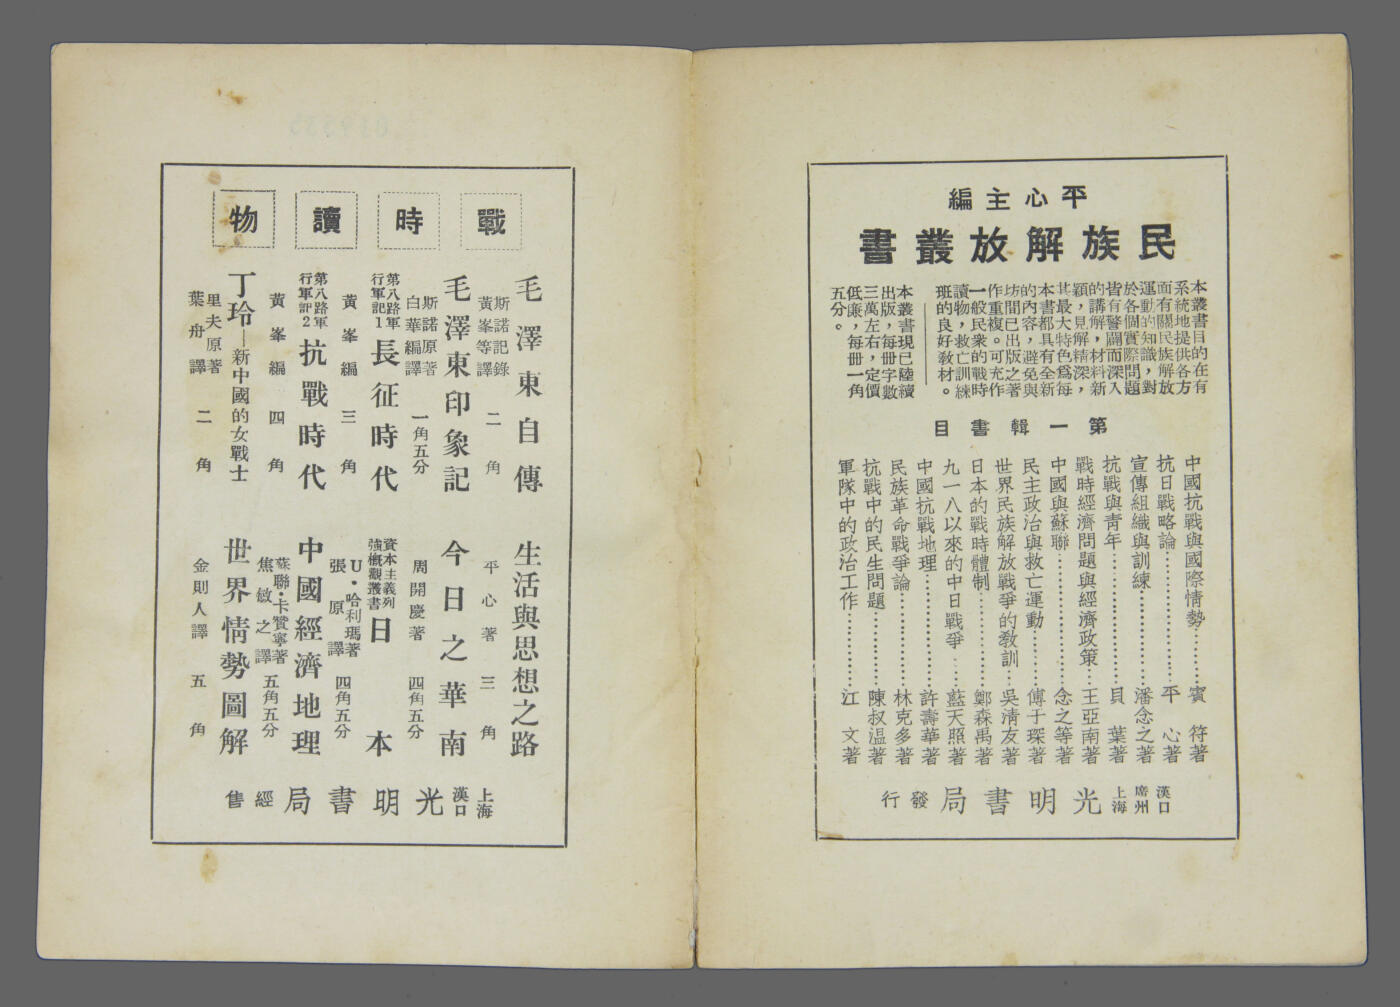 平心主編
民族解放叢書
本叢書目的在有
系統地提供各方
面有關民族解放
運動的知識，對
於各個實際問題
皆有警闢而深入
的講解，材料新
穎，見解精深，
其最大特色爲每
本書都具有全新
的內容，避免與
坊間已出版之著
作重複。可充作
一般民衆的戰時
讀物，救亡訓練
班的良好教材。
本叢書現已陸續
出版，每冊字數
三萬左右，定價
低廉，每冊一角
五分。
第一輯書目
中國抗戰與國際情勢……賓符著
抗日戰略論……平心著
宣傳組織與訓練……潘念之著
抗戰與青年……貝葉著
戰時經濟問題與經濟政策……王亞南著
中國與蘇聯……念之等著
民主政治與救亡運動……傅于琛著
世界民族解放戰爭的教訓……吳清友著
日本的戰時體制……鄭森禹著
九一八以來的中日戰爭……藍天照著
中國抗戰地理……許壽華著
民族革命戰爭論……林克多著
抗戰中的民生問題……陳叔溫著
軍隊中的政治工作……江文著
漢口
廣州
上海
光明書局發行
戰時讀物
毛澤東自傳
斯諾記錄
黃峯等譯
二角
毛澤東印象記
斯諾原著
白華編譯
一角五分
第八路軍
行軍記1
長征時代
黃峯編
三角
第八路軍
行軍記2
抗戰時代
黃峯編
四角
丁玲——新中國的女戰士
里夫原著
葉舟譯
二角
生活與思想之路
平心著
三角
今日之華南
周開慶著
四角五分
資本主義列
強概觀叢書
日本
U·哈利瑪著
張原譯
四角五分
中國經濟地理
蘇聯·卡贊寧著
焦敏之譯
五角五分
世界情勢圖解
金則人譯
五角
上海
漢口
光明書局經售